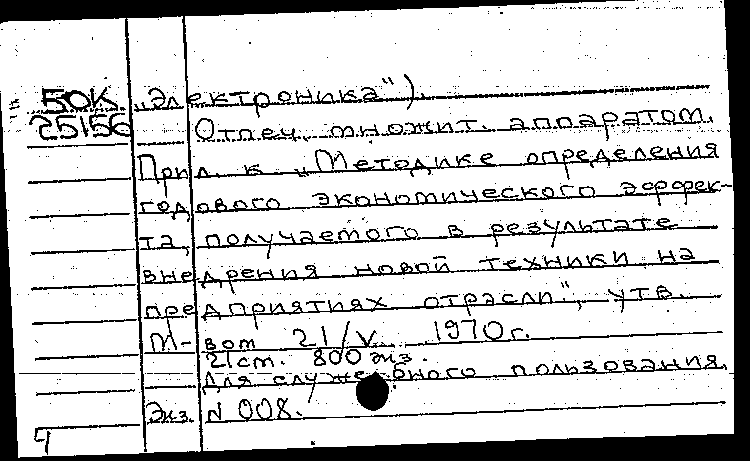 50К „Электроника").
25156 Отпеч. множит. аппаратом.
Прил. к „Методике определения
годового экономического эффек-
та, получаемого в результате
внедрения новой техники на
предприятиях отрасли", утв.
М-вом 21/V 1970г.
21см. 800 экз.
Для служебного пользования.
Экз. N 008.